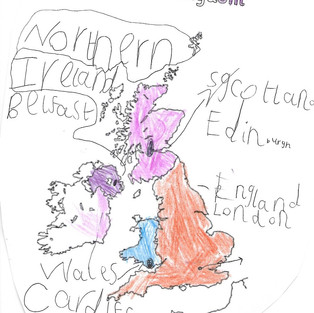 Northern
Ireland
Belfast
sgcotland
Edinburgh
England
London
Wales
Cardiff